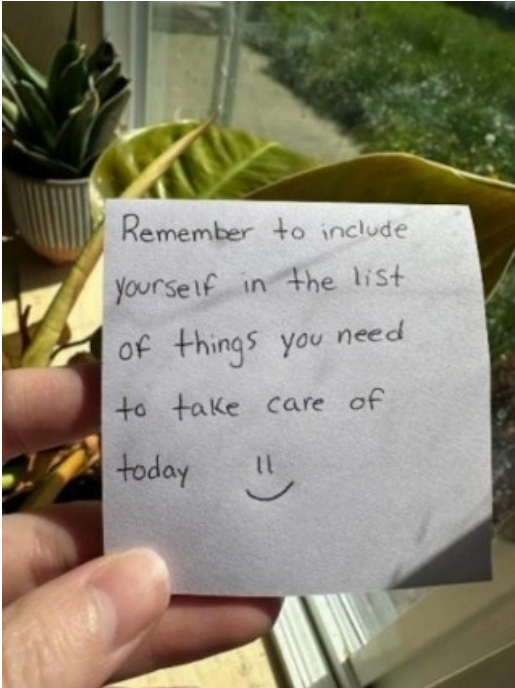 Remember to include
yourself in the list
of things you need
to take care of
today